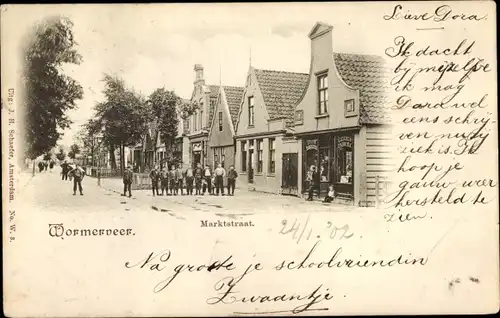 Lieve Dora,
Ik dacht
bij mijzelf ik
mag
Dora wel
eens schrij
ven nu zij
ziek is. Ik
hoop je
gauw weer
hersteld te
zien.
Uitg: J. H. Schaefer, Amsterdam. No. W. 3.
Wormerveer.
Marktstraat.
24/1. '02
Na groete je schoolvriendin
Zwaantje.